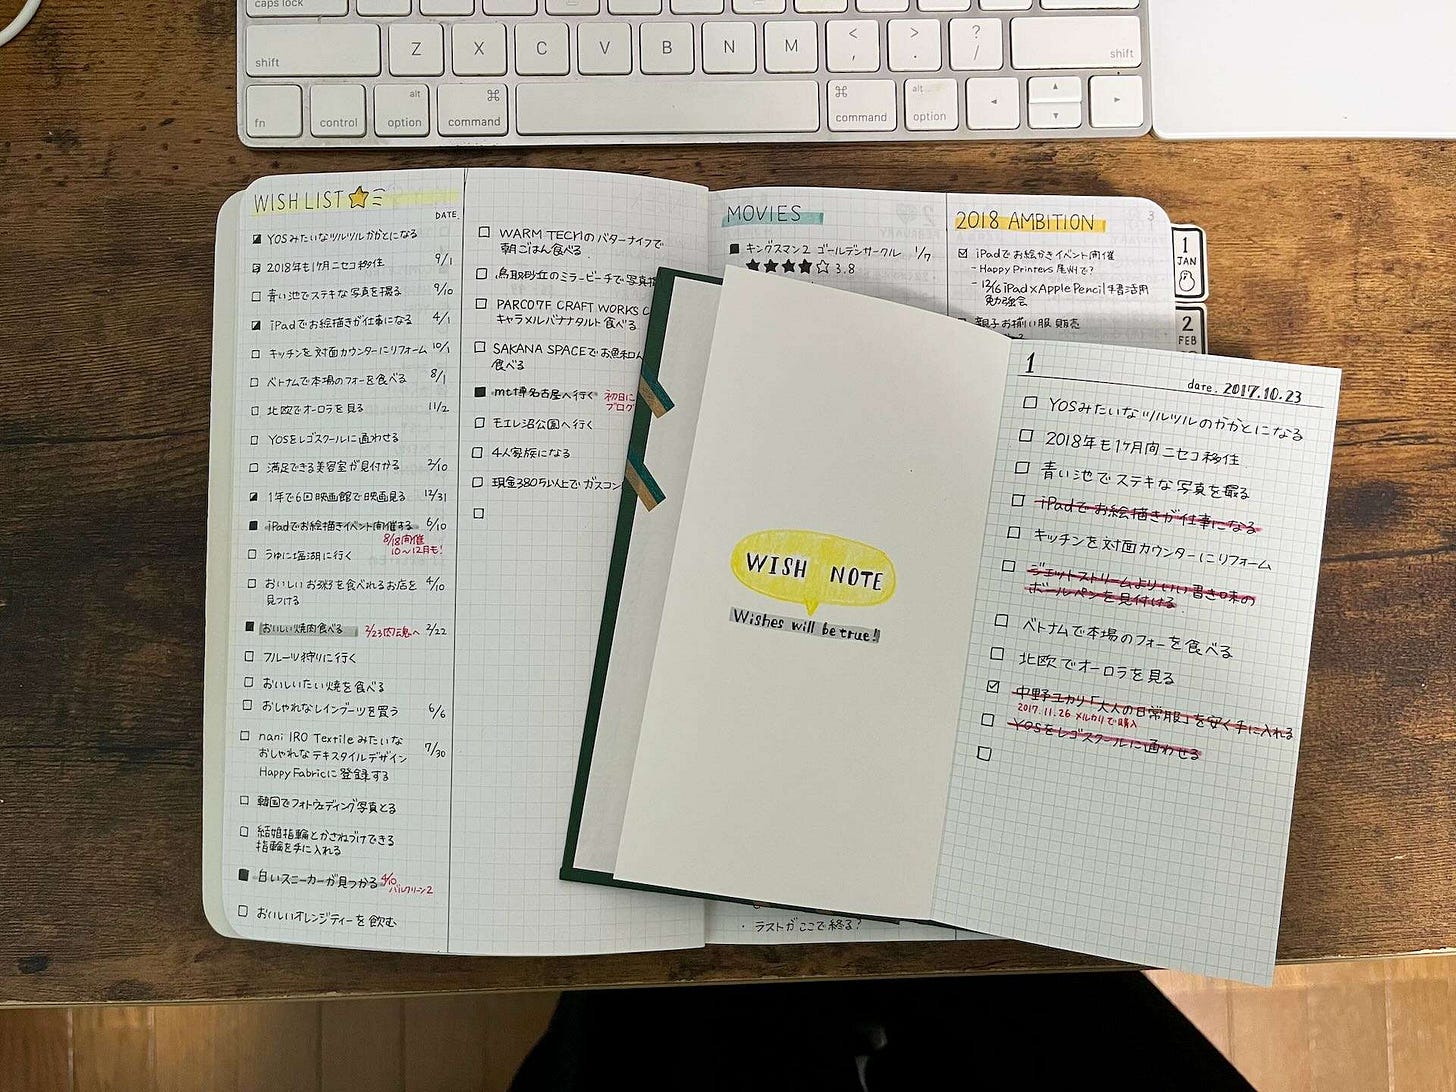 caps lock
shift
Z
X
C
V
B
N
M
<
,
>
.
?
/
shift
fn
control
alt
option
⌘
command
⌘
command
alt
option
WISH LIST
DATE.
YOSみたいなツルツルかかとになる
2018年も1ヶ月ニセコ移住 9/1
青い池でステキな写真を撮る 9/10
iPadでお絵描きが仕事になる 4/1
キッチンを対面カウンターにリフォーム 10/1
ベトナムで本場のフォーを食べる 8/1
北欧でオーロラを見る 11/2
YOSをレゴスクールに通わせる
満足できる美容室が見付かる 2/10
1年で6回映画館で映画見る 12/31
iPadでお絵描きイベント開催する 6/10
8/18開催
10〜12月も!
うゆに塩湖に行く
おいしいお粥を食べれるお店を 4/10
見つける
おいしい焼肉食べる 2/23肉魂へ 2/22
フルーツ狩りに行く
おいしいたい焼を食べる
おしゃれなレインブーツを買う 6/6
nani IRO Textile みたいな
おしゃれなテキスタイルデザイン 7/30
Happy Fabricに登録する
韓国でフォトウェディング写真とる
結婚指輪とかさねづけできる
指輪を手に入れる
白いスニーカーが見つかる 4/10
バルクリーン2
おいしいオレンジティーを飲む
WARM TECHのバターナイフで
朝ごはん食べる
鳥取砂丘のミラービーチで写真撮
PARCO7F CRAFT WORKS C
キャラメルバナナタルト食べる
SAKANA SPACEでお魚和ん
食べる
mt博名古屋へ行く 初日に
ブログ
モエレ沼公園へ行く
4人家族になる
現金380万以上でガスコン
MOVIES
キングスマン2 ゴールデンサークル 1/7
★★★★☆ 3.8
・ラストがここで終る?
2018 AMBITION
3
iPadでお絵かきイベント開催
- Happy Printers 尾州で?
- 12/6 iPad×Apple Pencil 4書活用
勉強会
親子お揃い服販売
1
JAN
2
FEB
WISH NOTE
Wishes will be true!
1
date. 2017.10.23
YOSみたいなツルツルのかかとになる
2018年も1ヶ月間ニセコ移住
青い池でステキな写真を撮る
iPadでお絵描きが仕事になる
キッチンを対面カウンターにリフォーム
ジェットストリームよりいい書き味の
ボールペンを見付ける
ベトナムで本場のフォーを食べる
北欧でオーロラを見る
中野ユカリ「大人の日常服」を安く手に入れる
2017.11.26 メルカリで購入
YOSをレゴスクールに通わせる